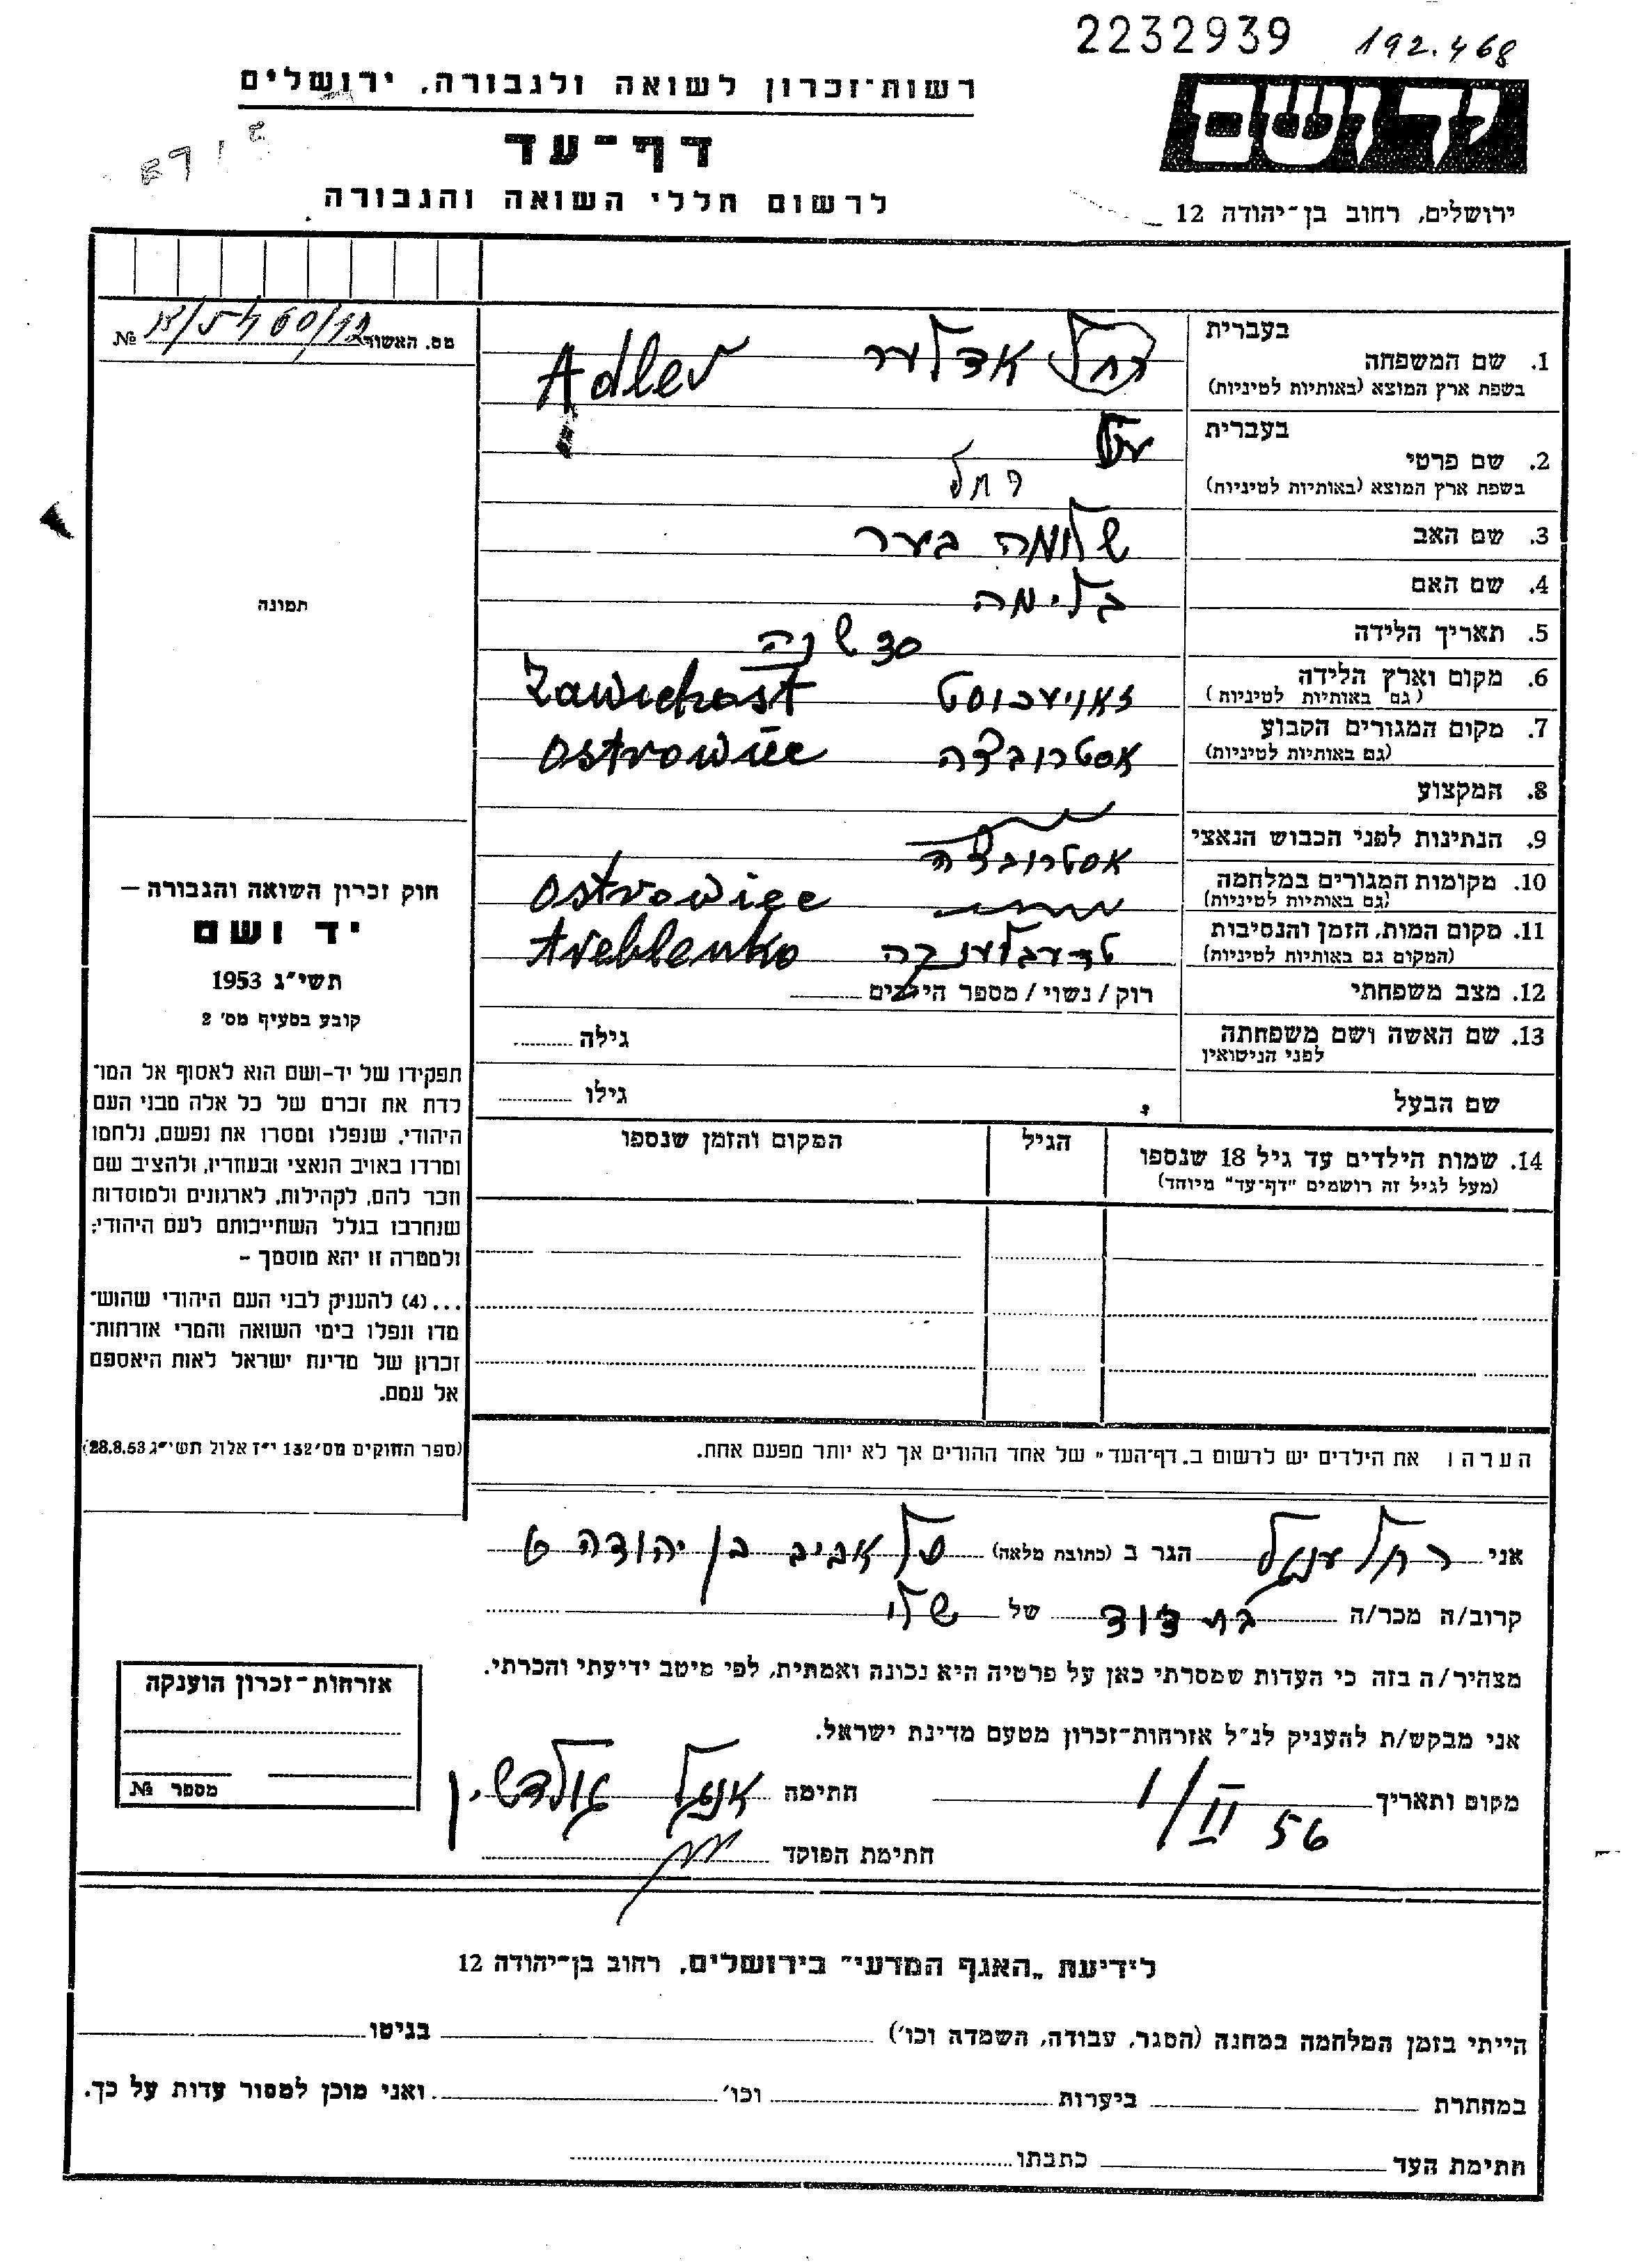 2232939 192.468
רשות־זכרון לשואה ולגבורה, ירושלים
יד ושם
דף־עד
לרשום חללי השואה והגבורה
ירושלים, רחוב בן־יהודה 12
מס. האשור №
1. שם המשפחה
בעברית
רחל אדלער Adler
בשפת ארץ המוצא (באותיות לטיניות)
2. שם פרטי
בעברית
בשפת ארץ המוצא (באותיות לטיניות)
רחל
3. שם האב שלומה בער
4. שם האם בלימה
5. תאריך הלידה 30 שנה
6. מקום וארץ הלידה זאוויכוסט Zawichost
(גם באותיות לטיניות)
7. מקום המגורים הקבוע אסטרובצה Ostrowiec
(גם באותיות לטיניות)
8. המקצוע
9. הנתינות לפני הכבוש הנאצי
אסטרובצה
10. מקומות המגורים במלחמה Ostrowiec
(גם באותיות לטיניות)
11. מקום המות, הזמן והנסיבות טרעבלענקה treblenko
(המקום גם באותיות לטיניות)
12. מצב משפחתי רוק / נשוי / מספר הילדים
13. שם האשה ושם משפחתה גילה
לפני הנישואין
שם הבעל גילו
14. שמות הילדים עד גיל 18 שנספו הגיל המקום והזמן שנספו
(מעל לגיל זה רושמים "דף־עד" מיוחד)
הערה: את הילדים יש לרשום ב„דף־העד" של אחד ההורים אך לא יותר מפעם אחת.
תמונה
חוק זכרון השואה והגבורה —
יד ושם
תשי"ג 1953
קובע בסעיף מס' 2
תפקידו של יד-ושם הוא לאסוף אל המו־
לדת את זכרם של כל אלה מבני העם
היהודי, שנפלו ומסרו את נפשם, נלחמו
ומרדו באויב הנאצי ובעוזריו, ולהציב שם
וזכר להם, לקהילות, לארגונים ולמוסדות
שנחרבו בגלל השתייכותם לעם היהודי;
ולמטרה זו יהא מוסמך –
... (4) להעניק לבני העם היהודי שהוש־
מדו ונפלו בימי השואה והמרי אזרחות־
זכרון של מדינת ישראל לאות היאספם
אל עמם.
(ספר החוקים מס' 132 י"ז אלול תשי"ג 28.8.53)
אני רחל ענגל הגר ב (כתובת מלאה) תל אביב בן יהודה 6
קרוב/ה מכר/ה בת דוד של שלי
מצהיר/ה בזה כי העדות שמסרתי כאן על פרטיה היא נכונה ואמתית, לפי מיטב ידיעתי והכרתי.
אני מבקש/ת להעניק לנ"ל אזרחות־זכרון מטעם מדינת ישראל.
מקום ותאריך 1/II 56 חתימה אנגל גולדשין
חתימת הפוקד
אזרחות־זכרון הוענקה
מספר №
לידיעת „האגף המדעי" בירושלים, רחוב בן־יהודה 12
הייתי בזמן המלחמה במחנה (הסגר, עבודה, השמדה וכו') בגיטו
במחתרת ביערות וכו' ואני מוכן למסור עדות על כך.
חתימת העד כתבתו